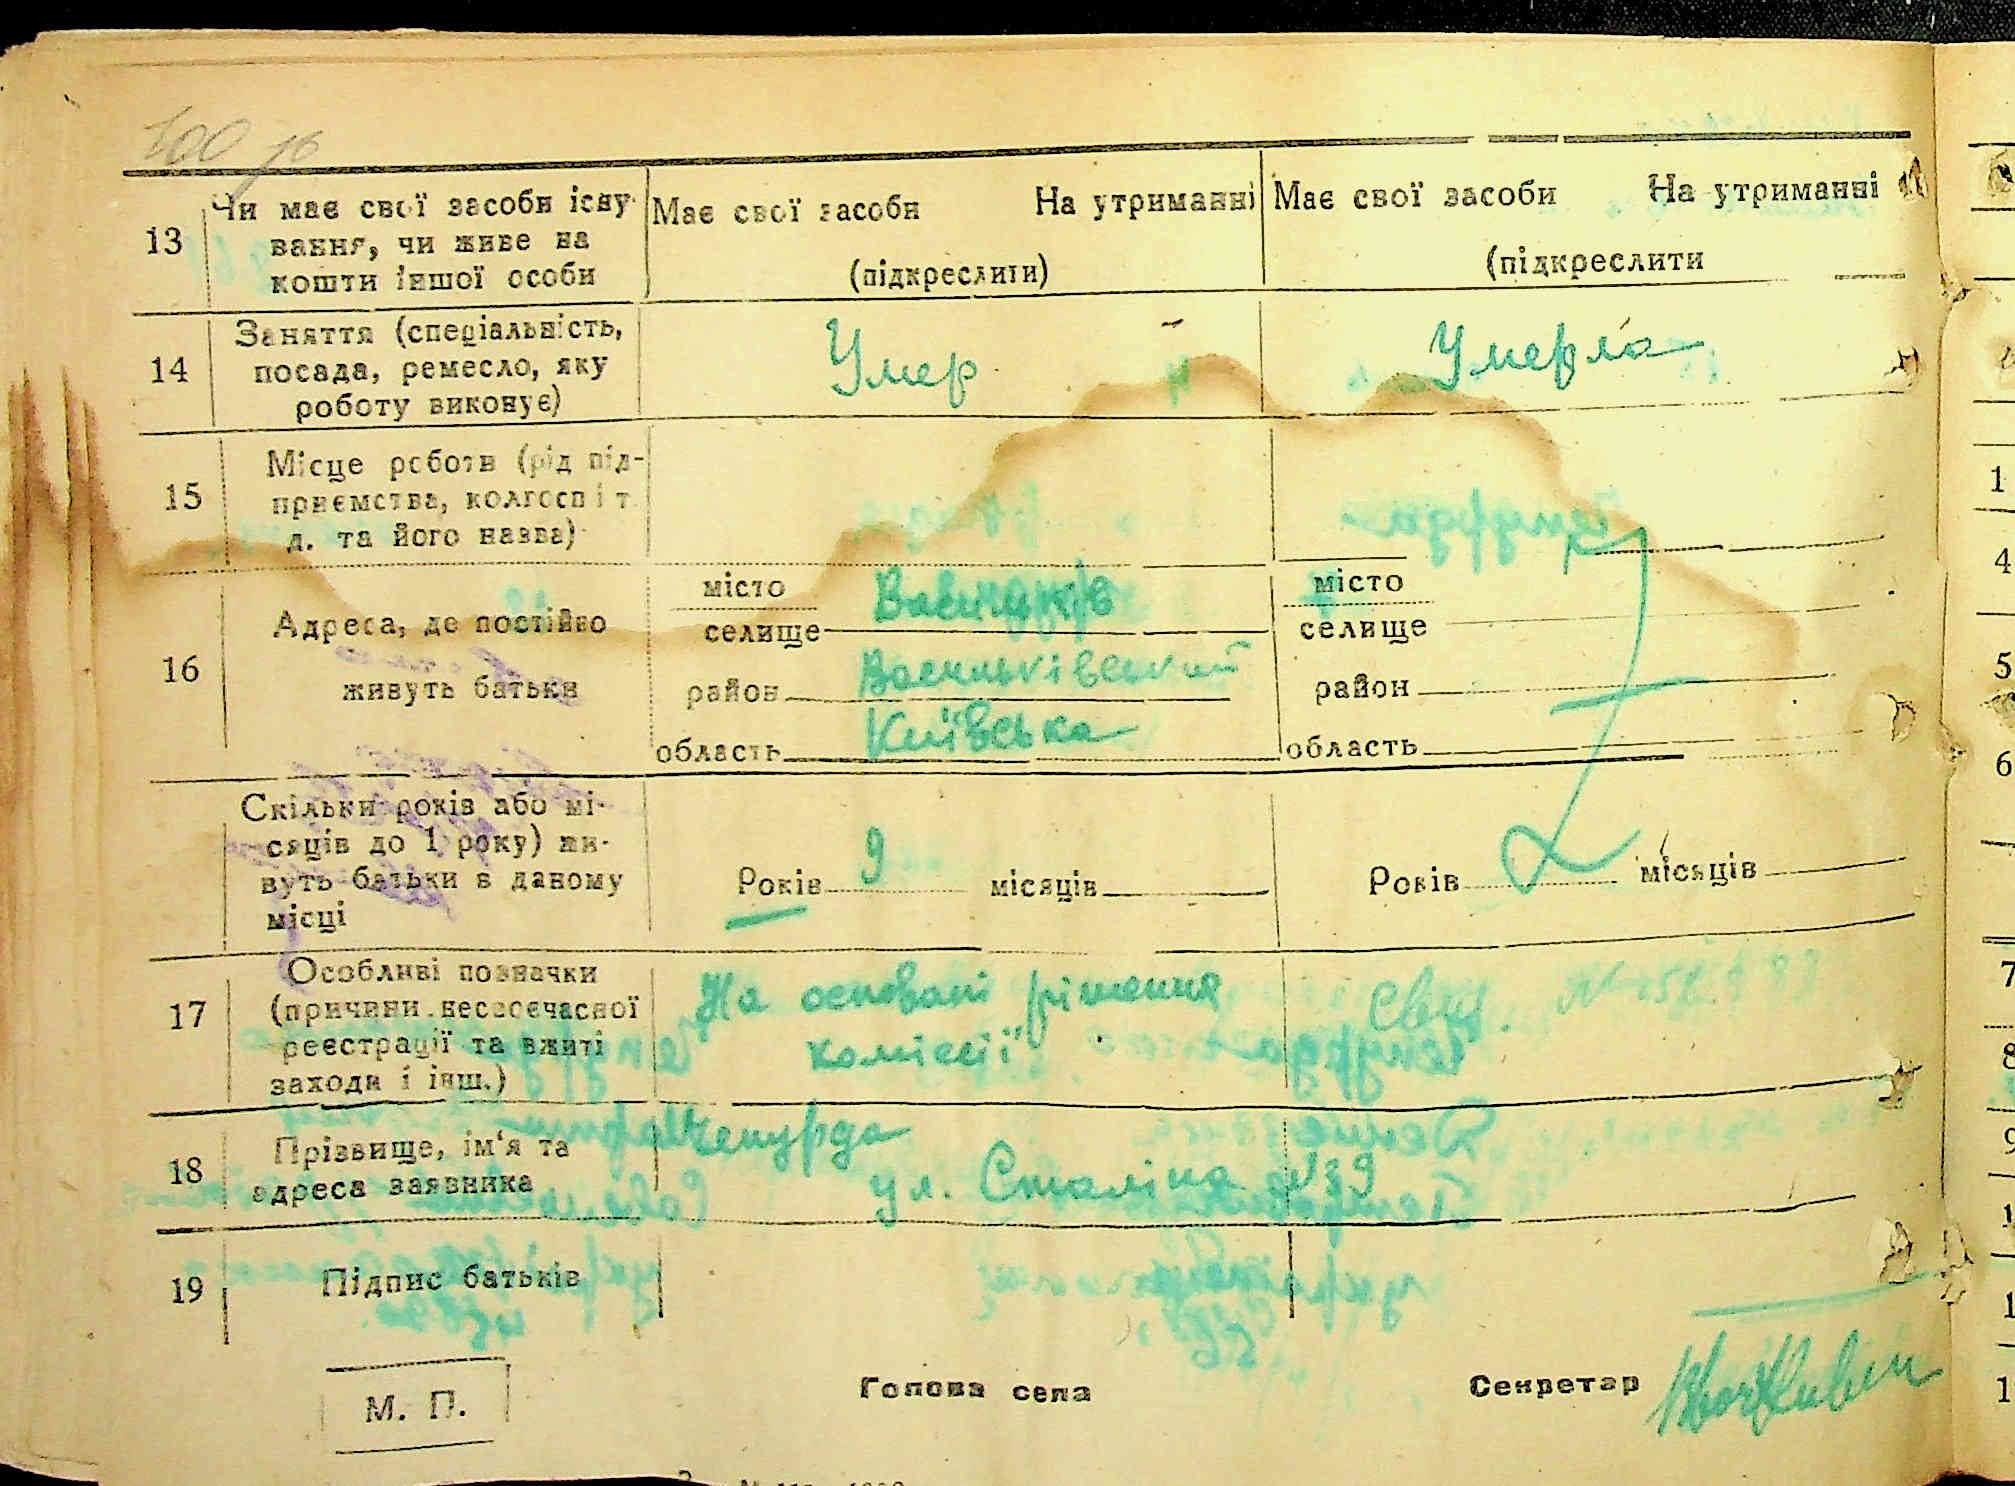 100 зв
13
Чи має свої засоби існу-
вання, чи живе на
кошти іншої особи
Має свої засоби На утриманні
(підкреслити)
Має свої засоби На утриманні
(підкреслити
14
Заняття (спеціальність,
посада, ремесло, яку
роботу виконує)
Умер
Умерла
15
Місце роботи (рід під-
приємства, колгосп і т
д. та його назва)
16
Адреса, де постійно
живуть батьки
місто Васильків
селище
район Васильківський
область Київська
місто
селище
район
область
Скільки років або мі-
сяців до 1 року) жи-
вуть батьки в даному
місці
Років 9 місяців
Років місяців
17
Особливі позначки
(причини несвоєчасної
реєстрації та вжиті
заходи і інш.)
На основані рішення
комісії
Свид. №
18
Прізвище, ім'я та
адреса заявника
Чепурда
ул. Сталіна №39
19
Підпис батьків
М. П.
Голова села
Секретар